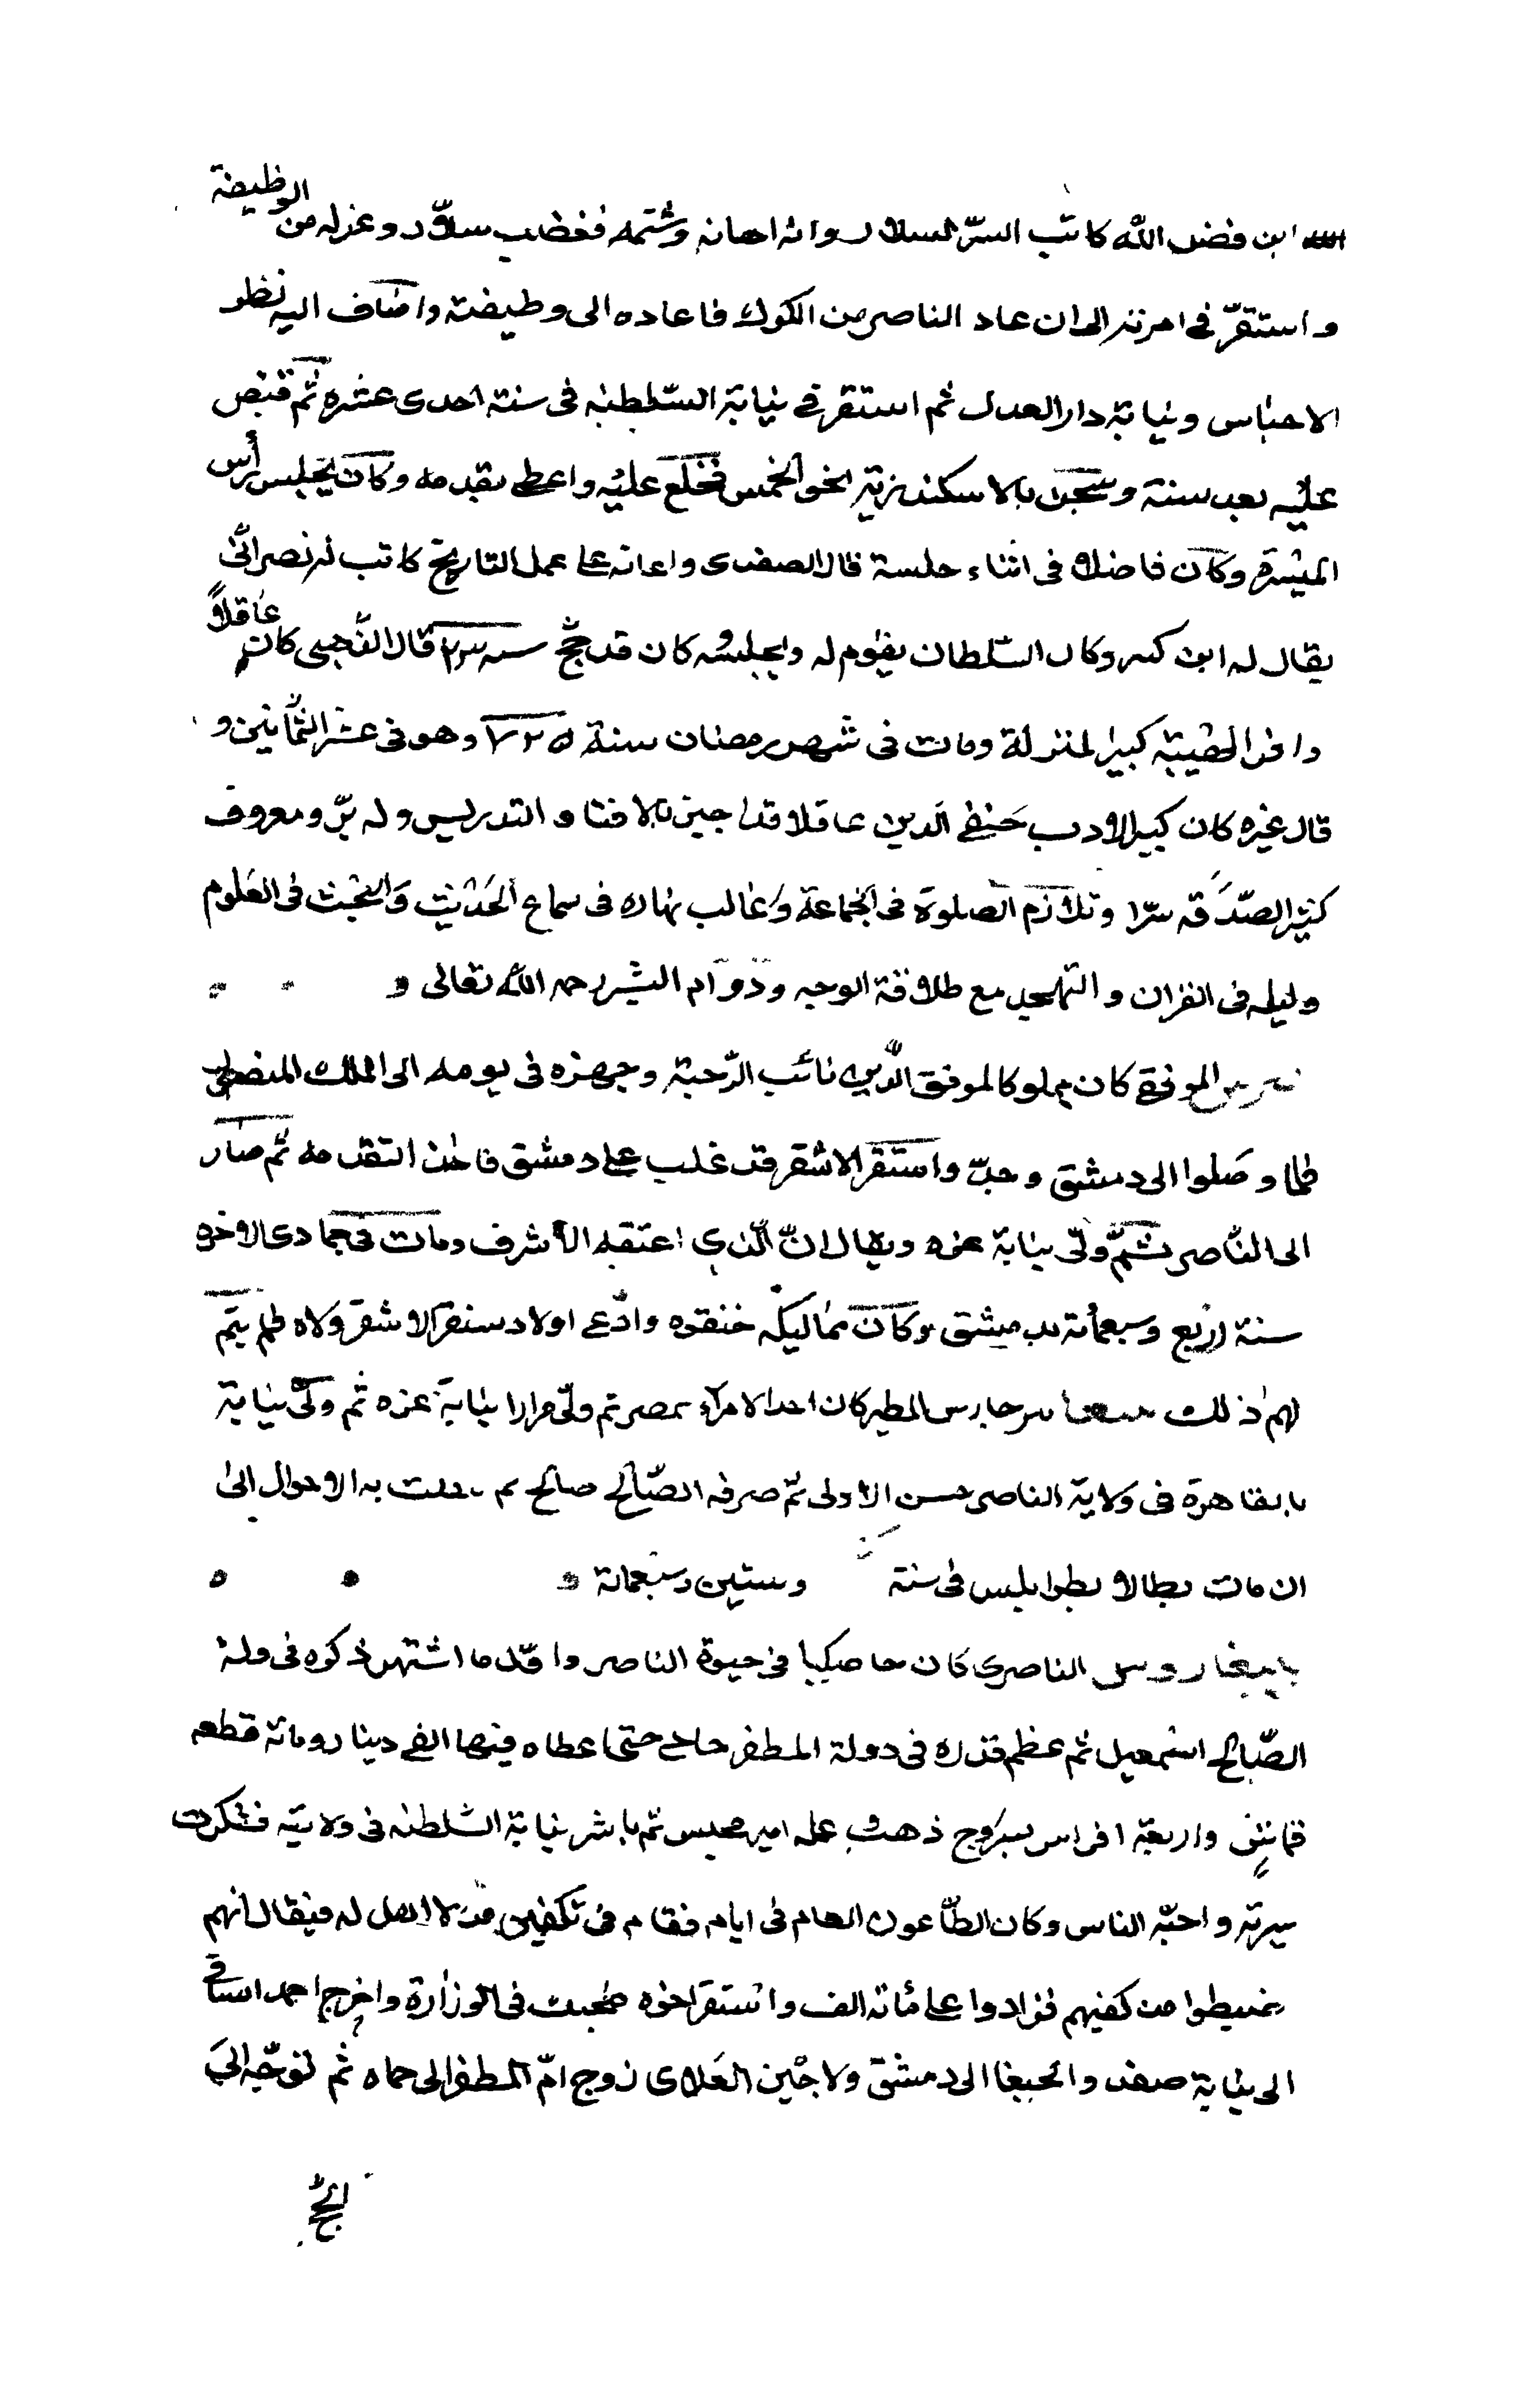 ابن فضل الله كاتب السرّ لسلار وانه اهانه وشتمه فغضب سلّار وعزله من الوظيفة
واستقرّ فى امرته الى ان عاد الناصر من الكرك فاعاده الى وظيفته واضاف اليه نظر
الاحباس ونيابة دار العدل ثم استقر فى نيابة السّلطنه فى سنة احدى عشره ثم قبض
عليه بعد سنة وسجن بالاسكندرية نحو الخمس فخلع عليه واعطى تقدمه وكان يجلس رأس
الميسرة وكان فاضلا فى اثناء جلسة قال الصفدى واعانه على عمل التاريخ كاتب له نصرانىّ
يقال له ابن كبر وكان السّلطان يقوم له ويجلسه كان قد حجّ سنة ٢٣ قال الذّهبى كان عاقلاً
وافر الهيبة كبير المنزلة ومات فى شهر رمضان سنة ٧٢٥ وهو فى عشر الثّمانين و
قال غيره كان كبير الادب حنفى الدين عاقلا قد اجيز بالافتا والتدريس وله برّ ومعروف
كثير الصّدقه سرّا وتلازم الصلوة فى الجماعة وغالب نهاره فى سماع الحديث والبحث فى العلوم
وليله فى القران والتهجد مع طلاقة الوجه ودوام البشر رحمه الله تعالى
بيبرس الموفقى كان مملوكا لموفق الدّين نائب الرّحبة وجهزه فى يومه الى الملك
فلما وصلوا الى دمشق وجدّ واستقر الاشقر قد غلب على دمشق فاخذ التقدمه ثم صار
الى النّاصر ثمّ ولّى نيابة غزه ويقال انّ الّذى اعتقه الاشرف ومات فى جمادى الاخره
سنة اربع وسبعمأته بدمشق وكان مماليكه خنقوه وادّعى اولاد سنقر الاشقر ولاه فلم يتم
لهم ذلك حارس المطير كان احد الامرآء بمصر ثم ولّى مرارا نيابة غزه ثم ولّى نيابة
بالقاهرة فى ولاية الناصر حسن الاولى ثمّ صرفه الصّالح صالح ثم تنقلت به الاحوال الى
ان مات بطالا بطرابلس فى سنة وستين وسبعمائة
بيبغا روس الناصرى كان خاصكيا فى حيوة الناصر واوّل ما اشتهر ذكره فى دولة
الصّالح اسمعيل ثم عظم قدره فى دولة المظفر حاجى حتى اعطاه فيها الفى دينار ومائة قطعه
قماش واربعة افراس بسروج ذهب عمله امير مجلس ثم باشر نيابة السّلطنه فى ولايته فشكرت
سيرته واحبّه الناس وكان الطّاعون العام فى ايام فقام فى تكفين من لا اهل له فيقال انهم
ضبطوا من كفنهم فزادوا على مائة الف واستقر اخوه منجك فى الوزارة واخرج احمد الساقى
الى نيابة صفد والجيبغا الى دمشق ولاجين العلاى زوج امّ المظفر الى حماه ثم توجّه الى
الحجّ